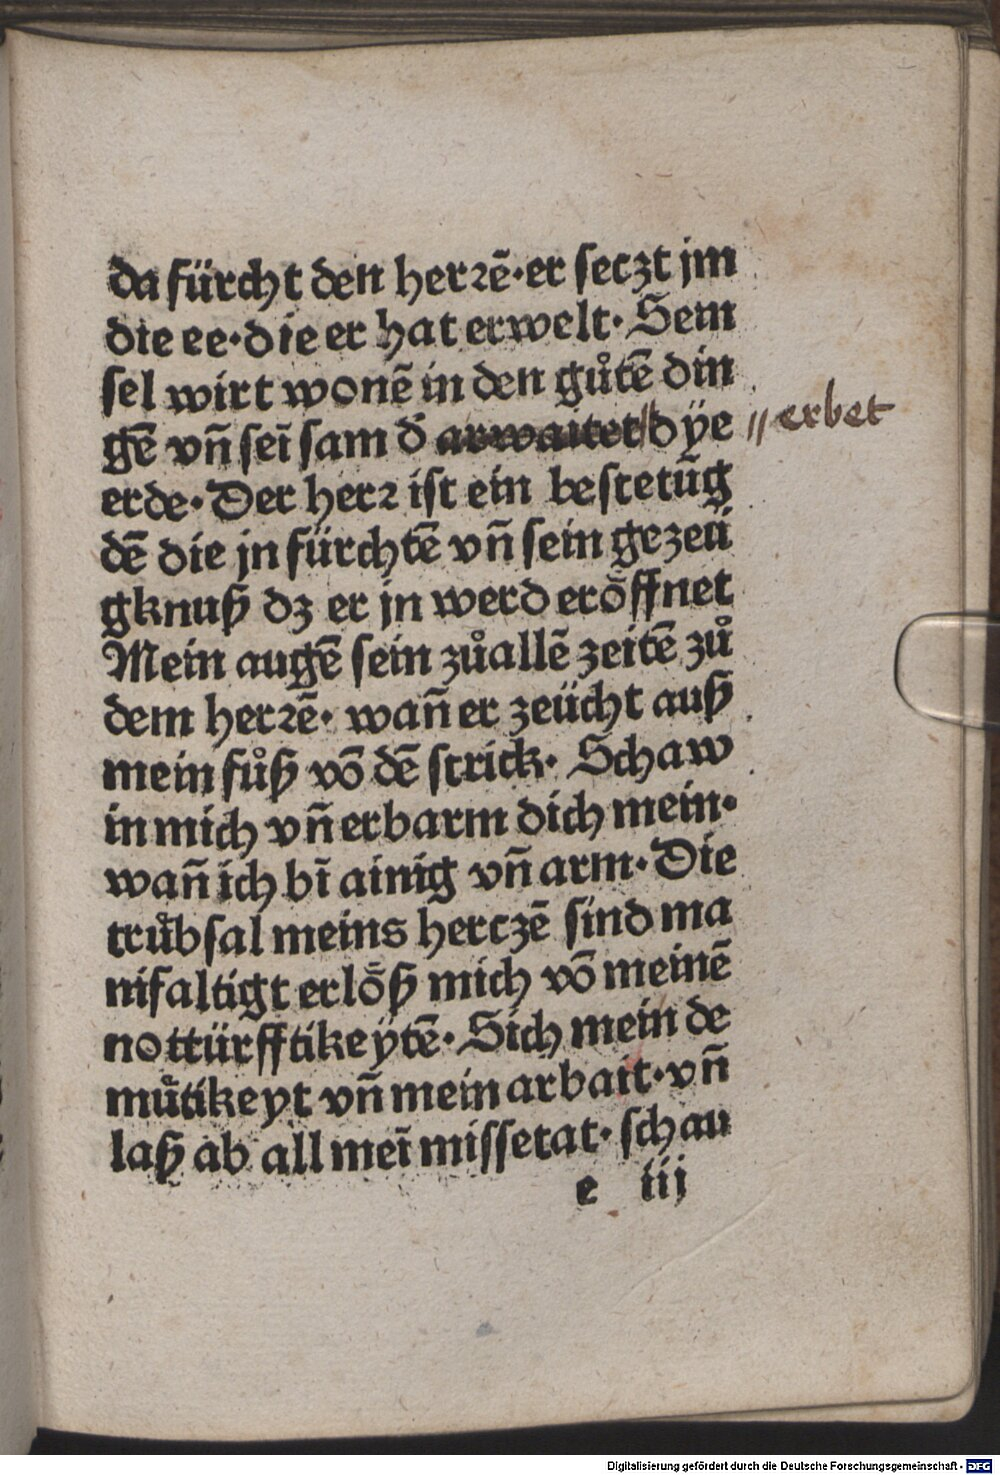 da fürcht den herꝛē·er seczt jm
die ee·die er hat erwelt· Sein
sel wirt wonē in den gůtē din
gē vñ sei̅ sam d̕ arwaitet dÿe
// erbet
erde· Der herꝛ ist ein bestetūg
dē die jn fürchtē vñ sein gezeü
gknuß dz er jn werd eröffnet
Mein augē sein zůallē zeitē zů
dem herꝛē· wañ er zeücht auß
mein fůß vō dē strick· Schaw
in mich vñ erbarm dich mein·
wañ ich bī ainig vñ arm· Die
trůbsal meins herczē sind ma
nifaltigt erlöß mich vō meinē
nottürfftikeÿtē· Sich mein de
můtikeyt vñ mein arbait·vñ
laß ab all mei̅ missetat· schau
e iij
Digitalisierung gefördert durch die Deutsche Forschungsgemeinschaft - DFG